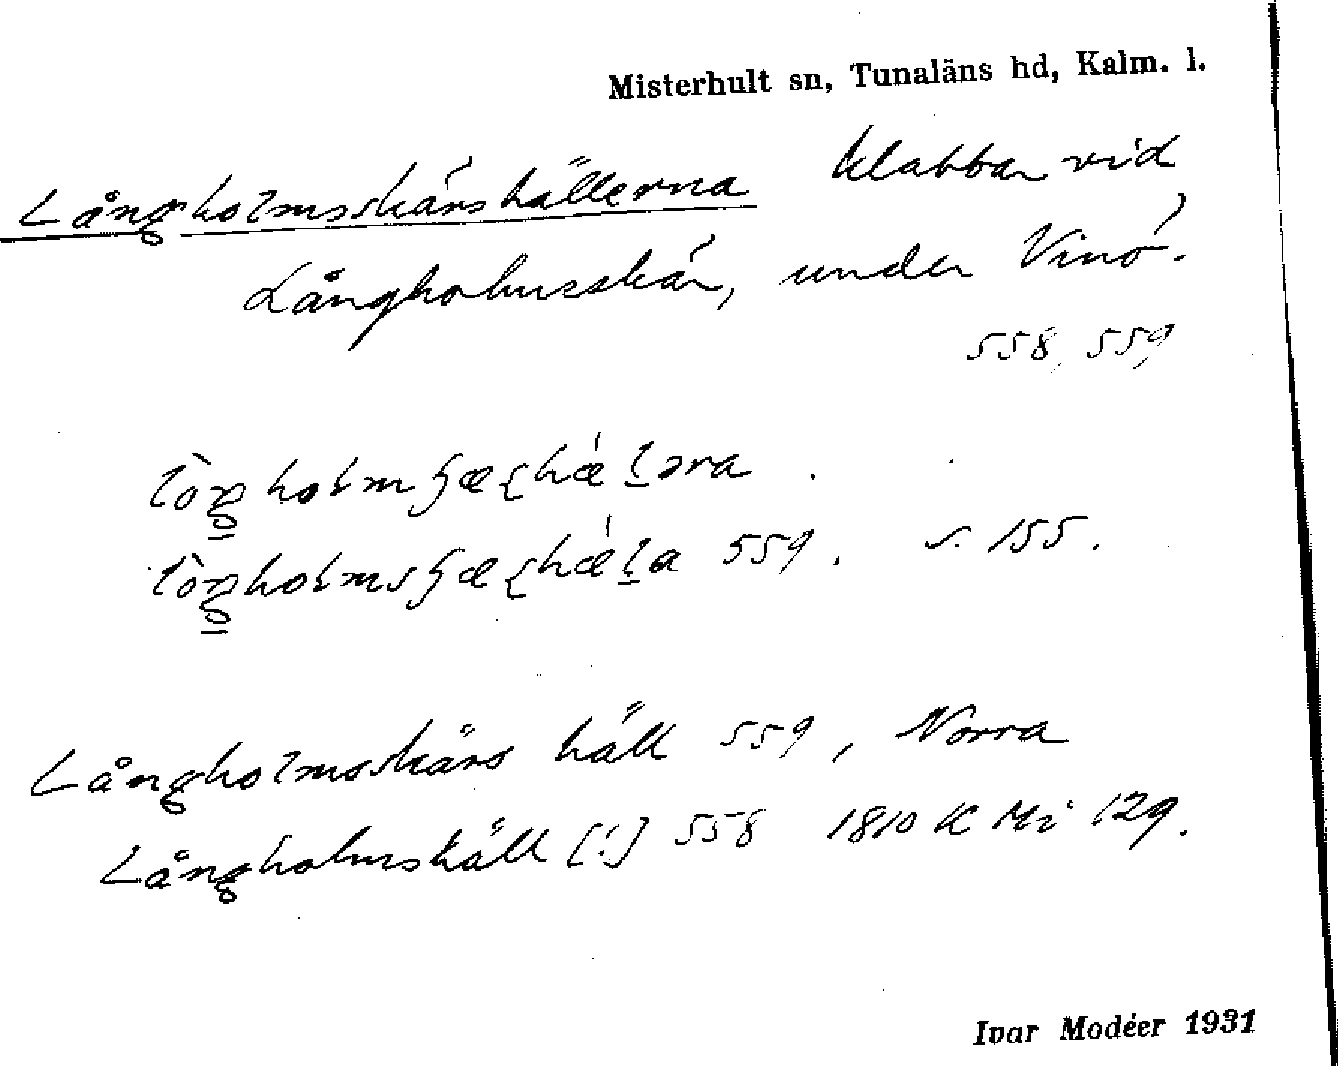 Misterhult sn, Tunaläns hd, Kalm. l.
Långholmsskärshällerna klabbar vid
Långholmsskär, under Vinö.
558, 559
559. s. 155.
Långholmsskärs häll 559, Norra
Långholmshäll [!] 558 1810 K Mi 129.
Ivar Modéer 1931